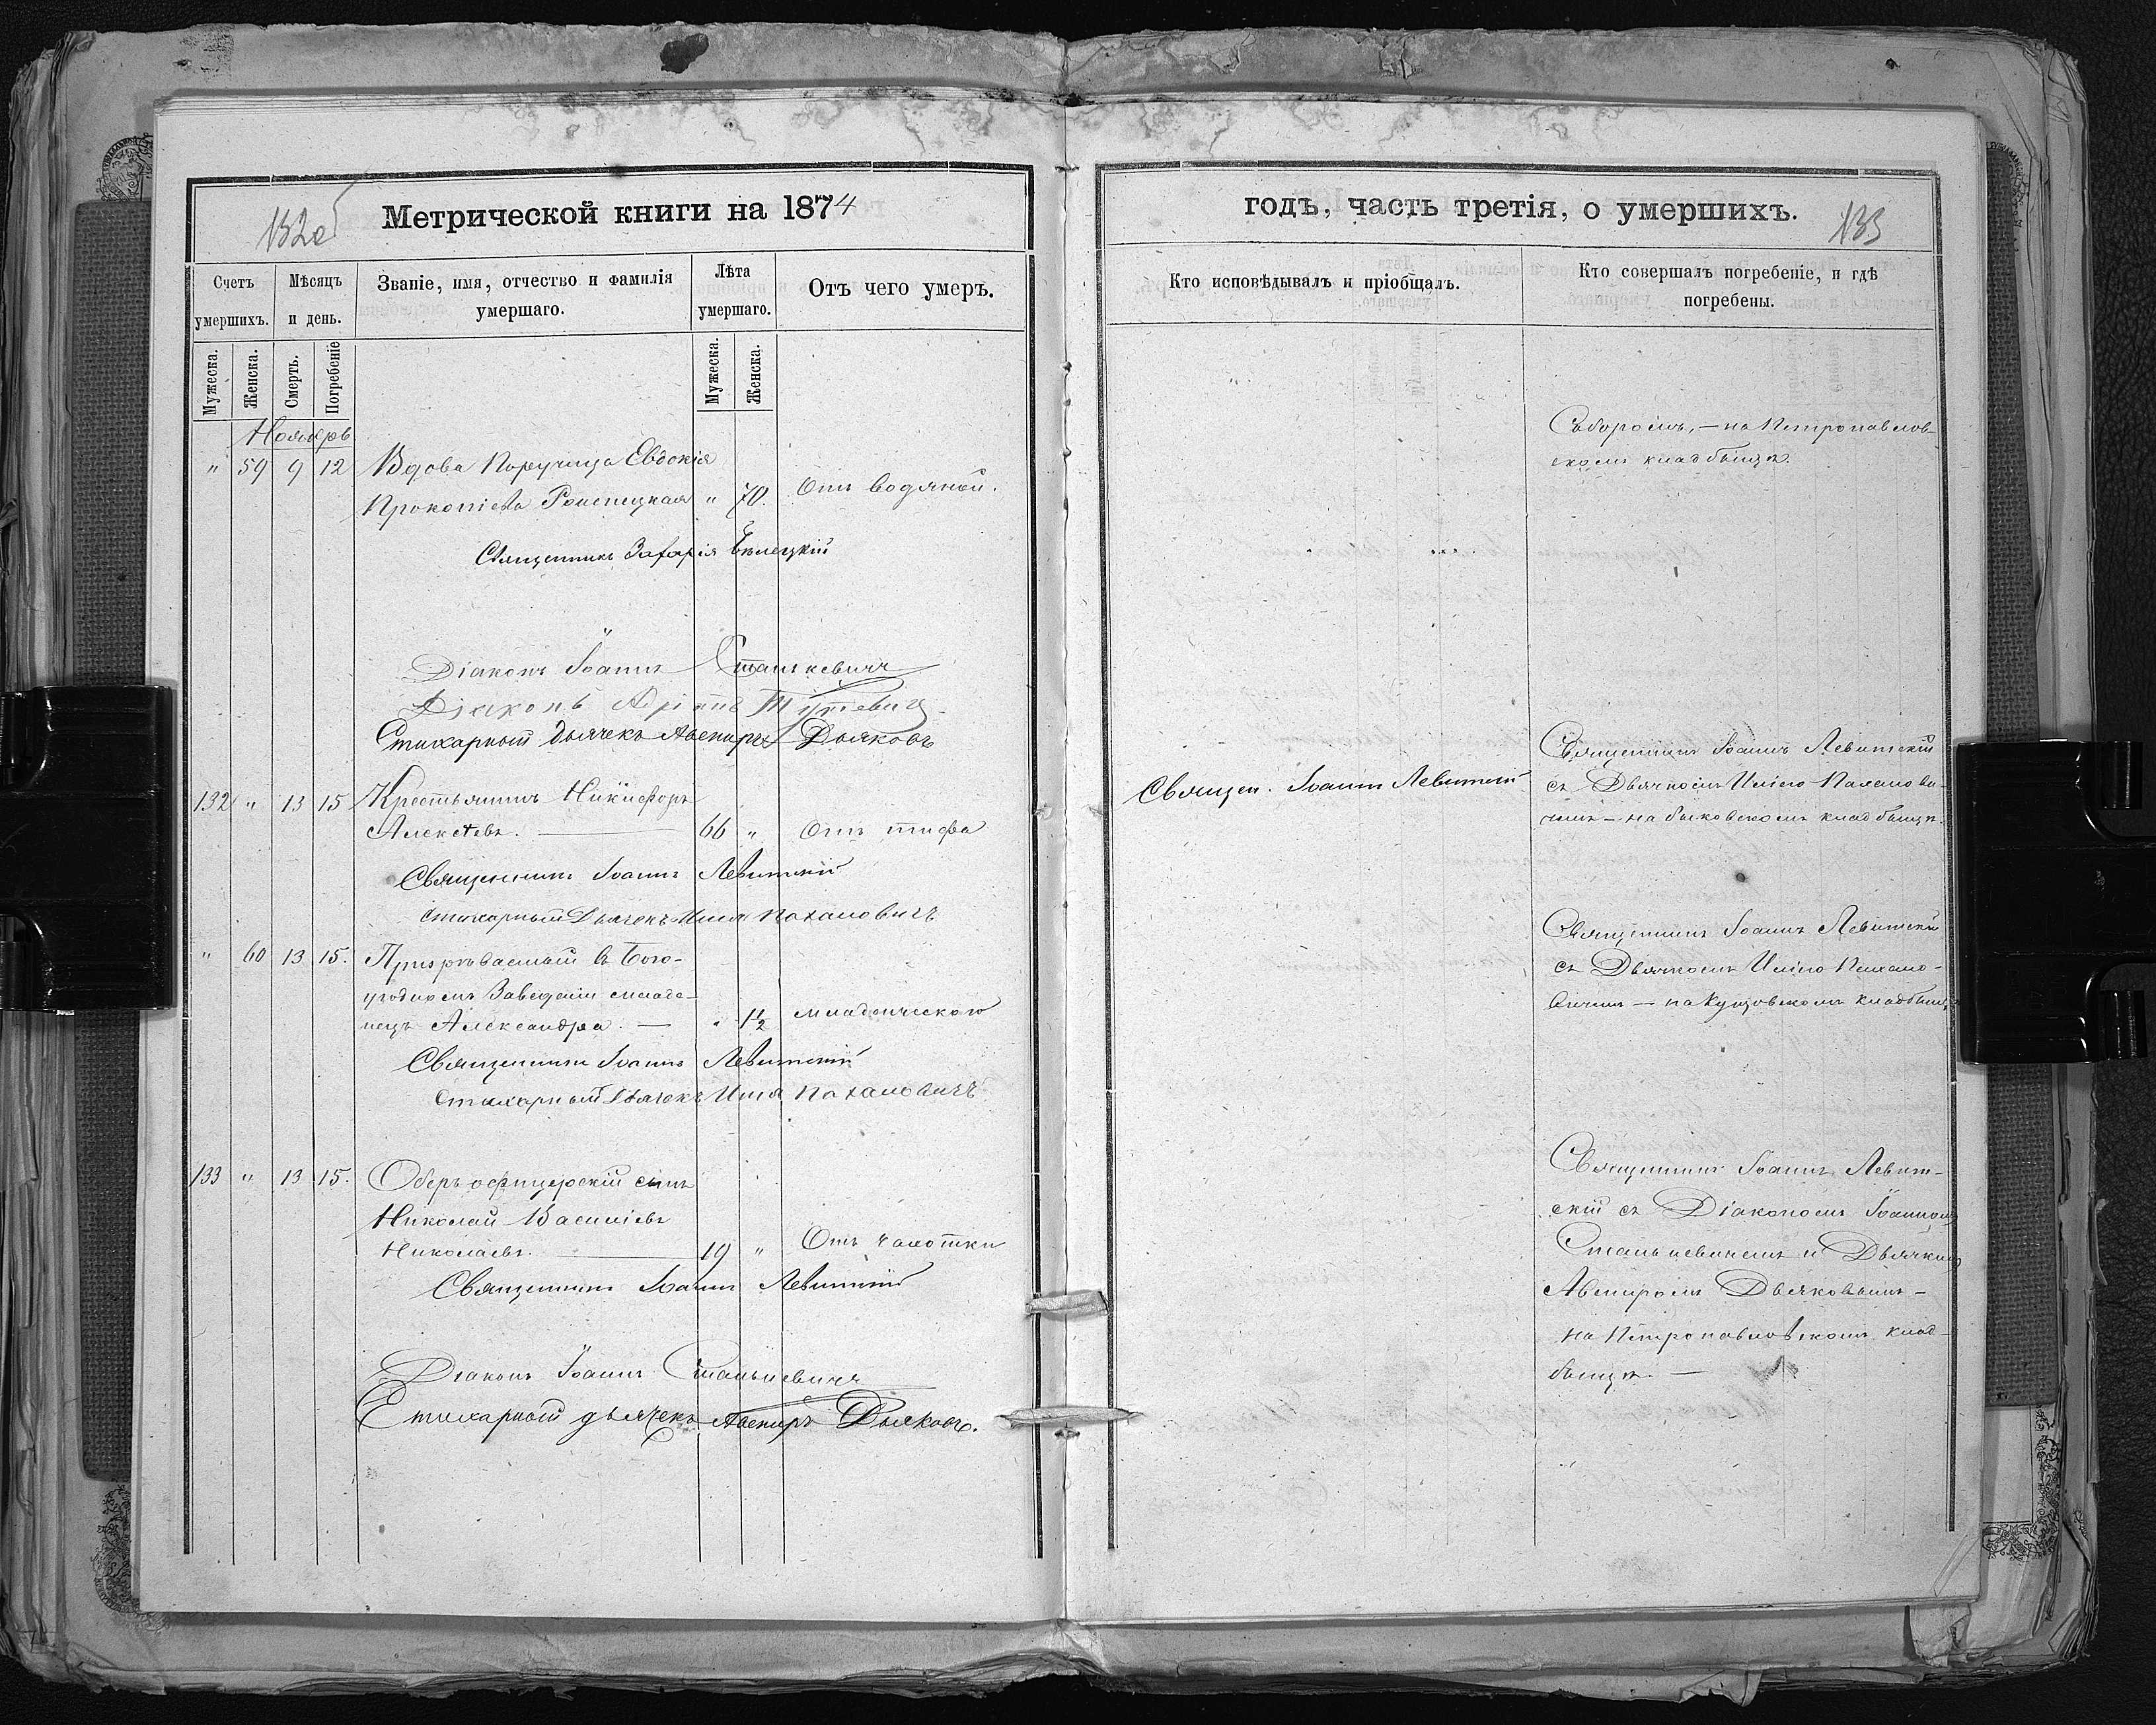 132об
Метрической книги на 1874
Счетъ умершихъ.
Мѣсяцъ и день.
Званіе, имя, отчество и фамилія умершаго.
Лѣта умершаго.
Отъ чего умеръ.
Мужеска.
Женска.
Смерть.
Погребеніе
Мужеска.
Женска.
Ноябрь
" 59 9 12 Вдова Поручица Евдокія
Прокопіева " 70. Отъ водяной.
Священникъ Захарія Бѣлецкій
Діаконъ Іоаннъ Станькевичъ
Діаконъ
Стихарный Дьячекъ Авениръ Дьяковъ
132 " 13 15 Крестьянинъ Никифоръ
Алексѣевъ. 66 " Отъ тифа
Священникъ Іоаннъ Левитскій
Стихарный Дьячекъ Илія Пахаловичъ
" 60 13 15. Призрѣваемый въ Бого-
угодномъ Заведеніи младе-
нецъ Александра. — " 1½ младенческаго
Священникъ Іоаннъ Левитскій
Стихарный Дьячекъ Илія Пахаловичъ
133 " 13 15. Оберъ офицерскій сынъ
Николай Василіевъ
Николаевъ. 19 " Отъ чахотки
Священникъ Іоаннъ Левитскій
Діаконъ Іоаннъ Станькевичъ
Стихарный дьячекъ Авениръ Дьяковъ.
годъ, часть третія, о умершихъ.
133
Кто исповѣдывалъ и пріобщалъ.
Кто совершалъ погребеніе, и гдѣ
погребены.
Съборомъ, — на Петропавлов-
скомъ кладбищѣ.
Священ. Іоаннъ Левитскій
Священникъ Іоаннъ Левитскій
съ Дьячкомъ Иліею Пахалови-
чемъ — на быковскомъ кладбищѣ.
Священникъ Іоаннъ Левитскій
съ Дьячкомъ Иліею Пахало-
вичемъ — на Кунцовскомъ кладбищѣ
Священникъ Іоаннъ Левит-
скій съ Діакономъ Іоанномъ
Станькевичемъ и Дьячкомъ
Авениромъ Дьяковымъ —
на Петропавловскомъ клад-
бищѣ. —